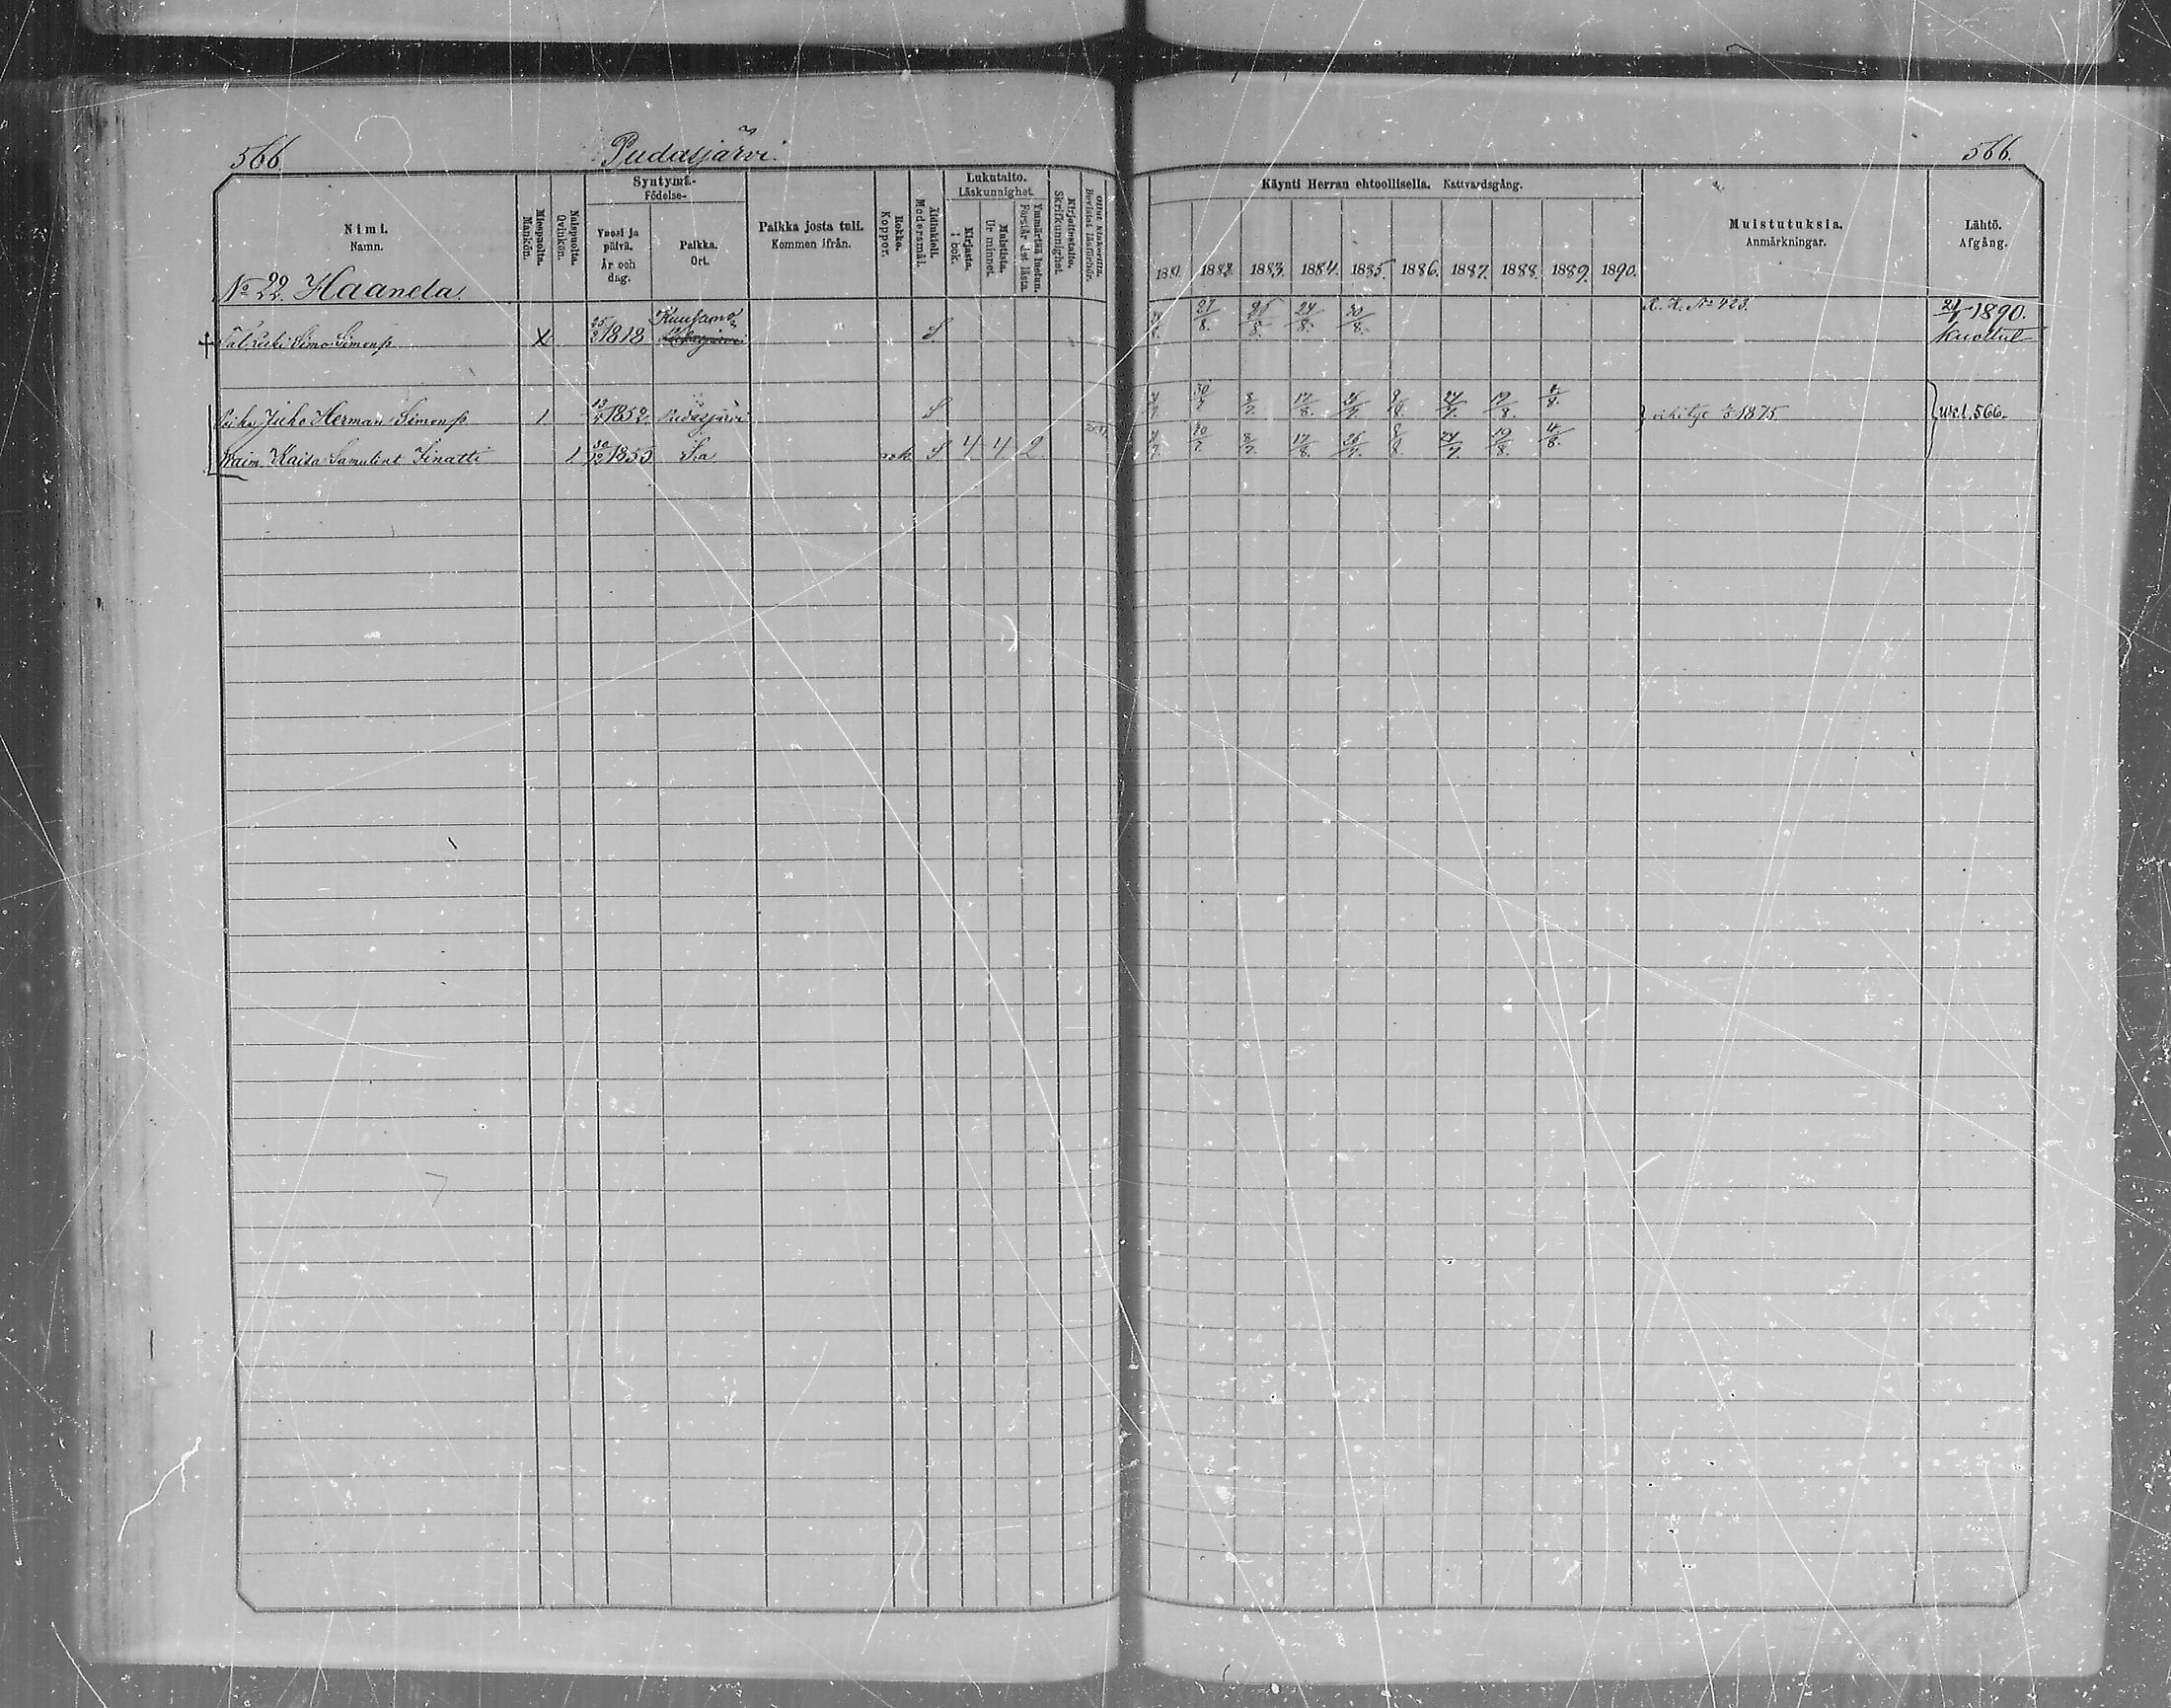 566.
Pudasjärvi.
566.
Nimi.
Namn.
Miespuolta.
Mankön.
Naispuolta.
Qvinkön.
Syntymä-
Födelse-
Vuosi ja päivä.
År och dag.
Paikka.
Ort.
Paikka josta tuli.
Kommen ifrån.
Rokko.
Koppor.
Äidinkieli.
Modersmål.
Lukutaito.
Läskunnighet.
Kirjasta.
I bok.
Muistista.
Ur minnet.
Ymmärtää luetun.
Förstår det lästa.
Kirjoitustaito.
Skrifkunnighet.
Bevistat läsförhör.
Käynti Herran ehtoollisella. Nattvardsgång.
1881. 1882. 1883. 1884. 1885. 1886. 1887. 1888. 1889. 1890.
Muistutuksia.
Anmärkningar.
Lähtö.
Afgång.
№ 22. Haanela.
Simo Simonp. X 25/2 1818 Kuusamo S 27/8. 24/8. 30/8. R. K. № 423. 1890. kuollut
Poika Juho Herman Simonp. 1. 1852. Pudasjärvi S 30/7 8/7. 17/8. 24/7. 19/8. 4/8. vihitty 1875. Wk l. 566.
Waim. Kaisa Samulint. Jinatti 1. 30/12 1855. S:a rok. S 4 4 2 30/7. 8/7. 17/8. 26/7. 24/7. 19/8. 4/8.